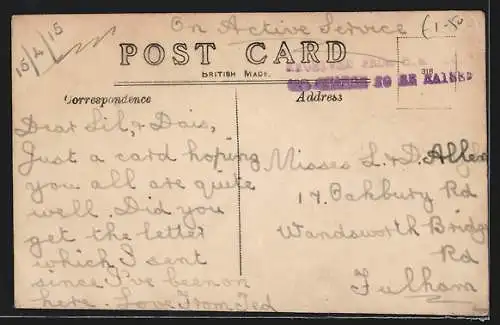 On Active Service
15/4/15
£1-50
POST CARD
BRITISH MADE.
318
RECEIVED FROM
NO CHARGE TO BE RAISED
Correspondence
Address
Dear Lil, & Dais,
Just a card hoping
you all are quite
well. Did you
get the letter
which I sent
since I've been on
here. Love From Ted
Misses L & D Allen
17. Oakbury Rd
Wandsworth Bridge
Rd
Fulham